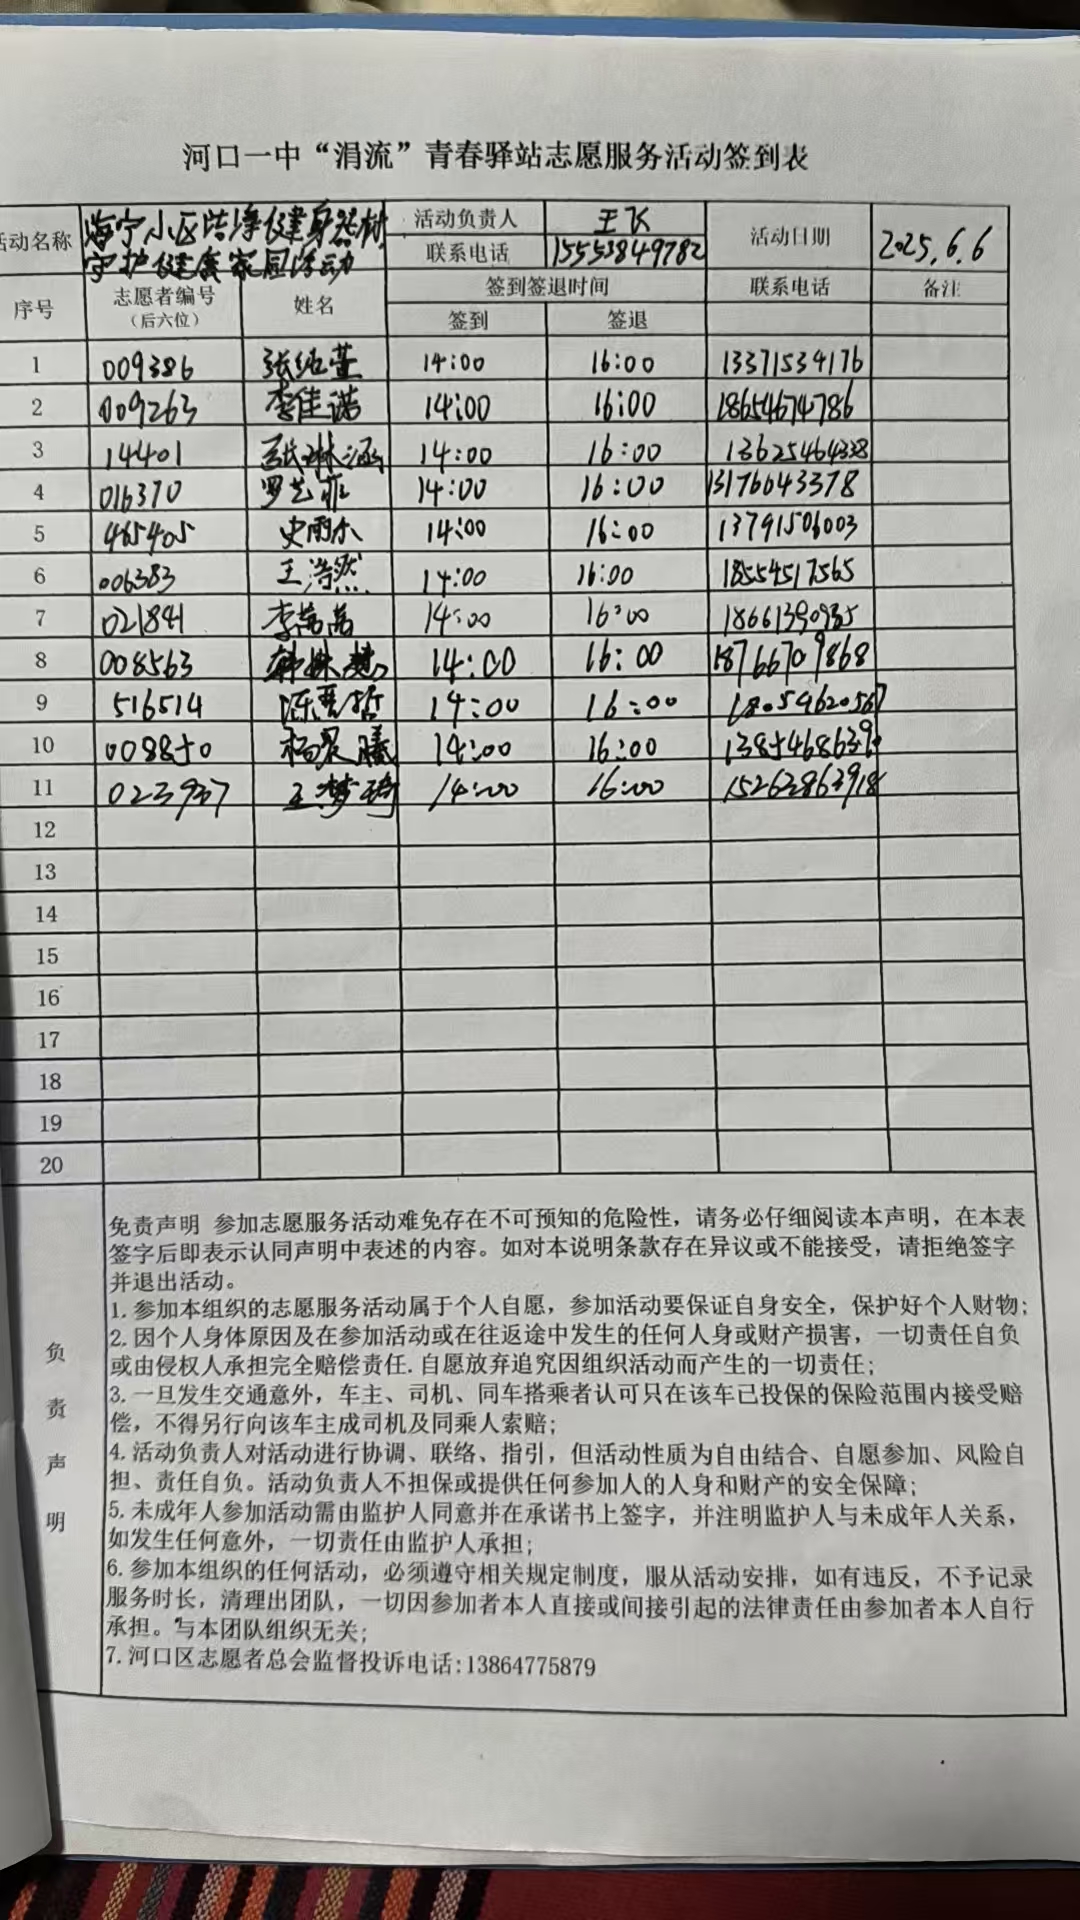 河口一中“涓流”青春驿站志愿服务活动签到表
活动名称 海宁小区洁净健身器材 守护健康家园活动 活动负责人 王飞 活动日期 2025.6.6
联系电话 15553849782
序号 志愿者编号（后六位） 姓名 签到签退时间 联系电话 备注
签到 签退
1 009386 张绍萱 14:00 16:00 13371534176
2 009263 李佳诺 14:00 16:00 18654674786
3 14401 张琳涵 14:00 16:00 13625464338
4 016370 罗艺菲 14:00 16:00 13176643378
5 465405 史雨尔 14:00 16:00 13791506003
6 006383 王浩然 14:00 16:00 18554517565
7 021841 14:00 16:00
8 008563 韩姝慧 14:00 16:00 18766709868
9 516514 14:00 16:00 18054620567
10 008850 杨景曦 14:00 16:00 13854686390
11 023937 王梦琦 14:00 16:00 15262863918
12
13
14
15
16
17
18
19
20
负责声明
免责声明 参加志愿服务活动难免存在不可预知的危险性，请务必仔细阅读本声明，在本表
签字后即表示认同声明中表述的内容。如对本说明条款存在异议或不能接受，请拒绝签字
并退出活动。
1. 参加本组织的志愿服务活动属于个人自愿，参加活动要保证自身安全，保护好个人财物；
2. 因个人身体原因及在参加活动或在往返途中发生的任何人身或财产损害，一切责任自负
或由侵权人承担完全赔偿责任. 自愿放弃追究因组织活动而产生的一切责任；
3. 一旦发生交通意外，车主、司机、同车搭乘者认可只在该车已投保的保险范围内接受赔
偿，不得另行向该车主成司机及同乘人索赔；
4. 活动负责人对活动进行协调、联络、指引，但活动性质为自由结合、自愿参加、风险自
担、责任自负。活动负责人不担保或提供任何参加人的人身和财产的安全保障；
5. 未成年人参加活动需由监护人同意并在承诺书上签字，并注明监护人与未成年人关系，
如发生任何意外，一切责任由监护人承担；
6. 参加本组织的任何活动，必须遵守相关规定制度，服从活动安排，如有违反，不予记录
服务时长，清理出团队，一切因参加者本人直接或间接引起的法律责任由参加者本人自行
承担。与本团队组织无关；
7. 河口区志愿者总会监督投诉电话:13864775879